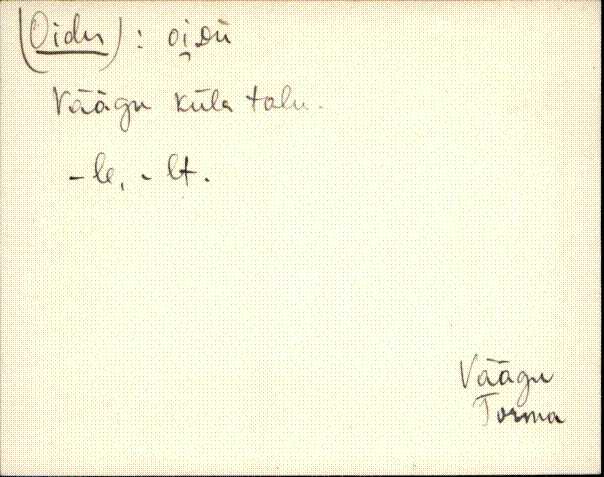 (Oidu) : oi̯Dù
Väägu küla talu.
-le, -lt.
Väägu
Torma